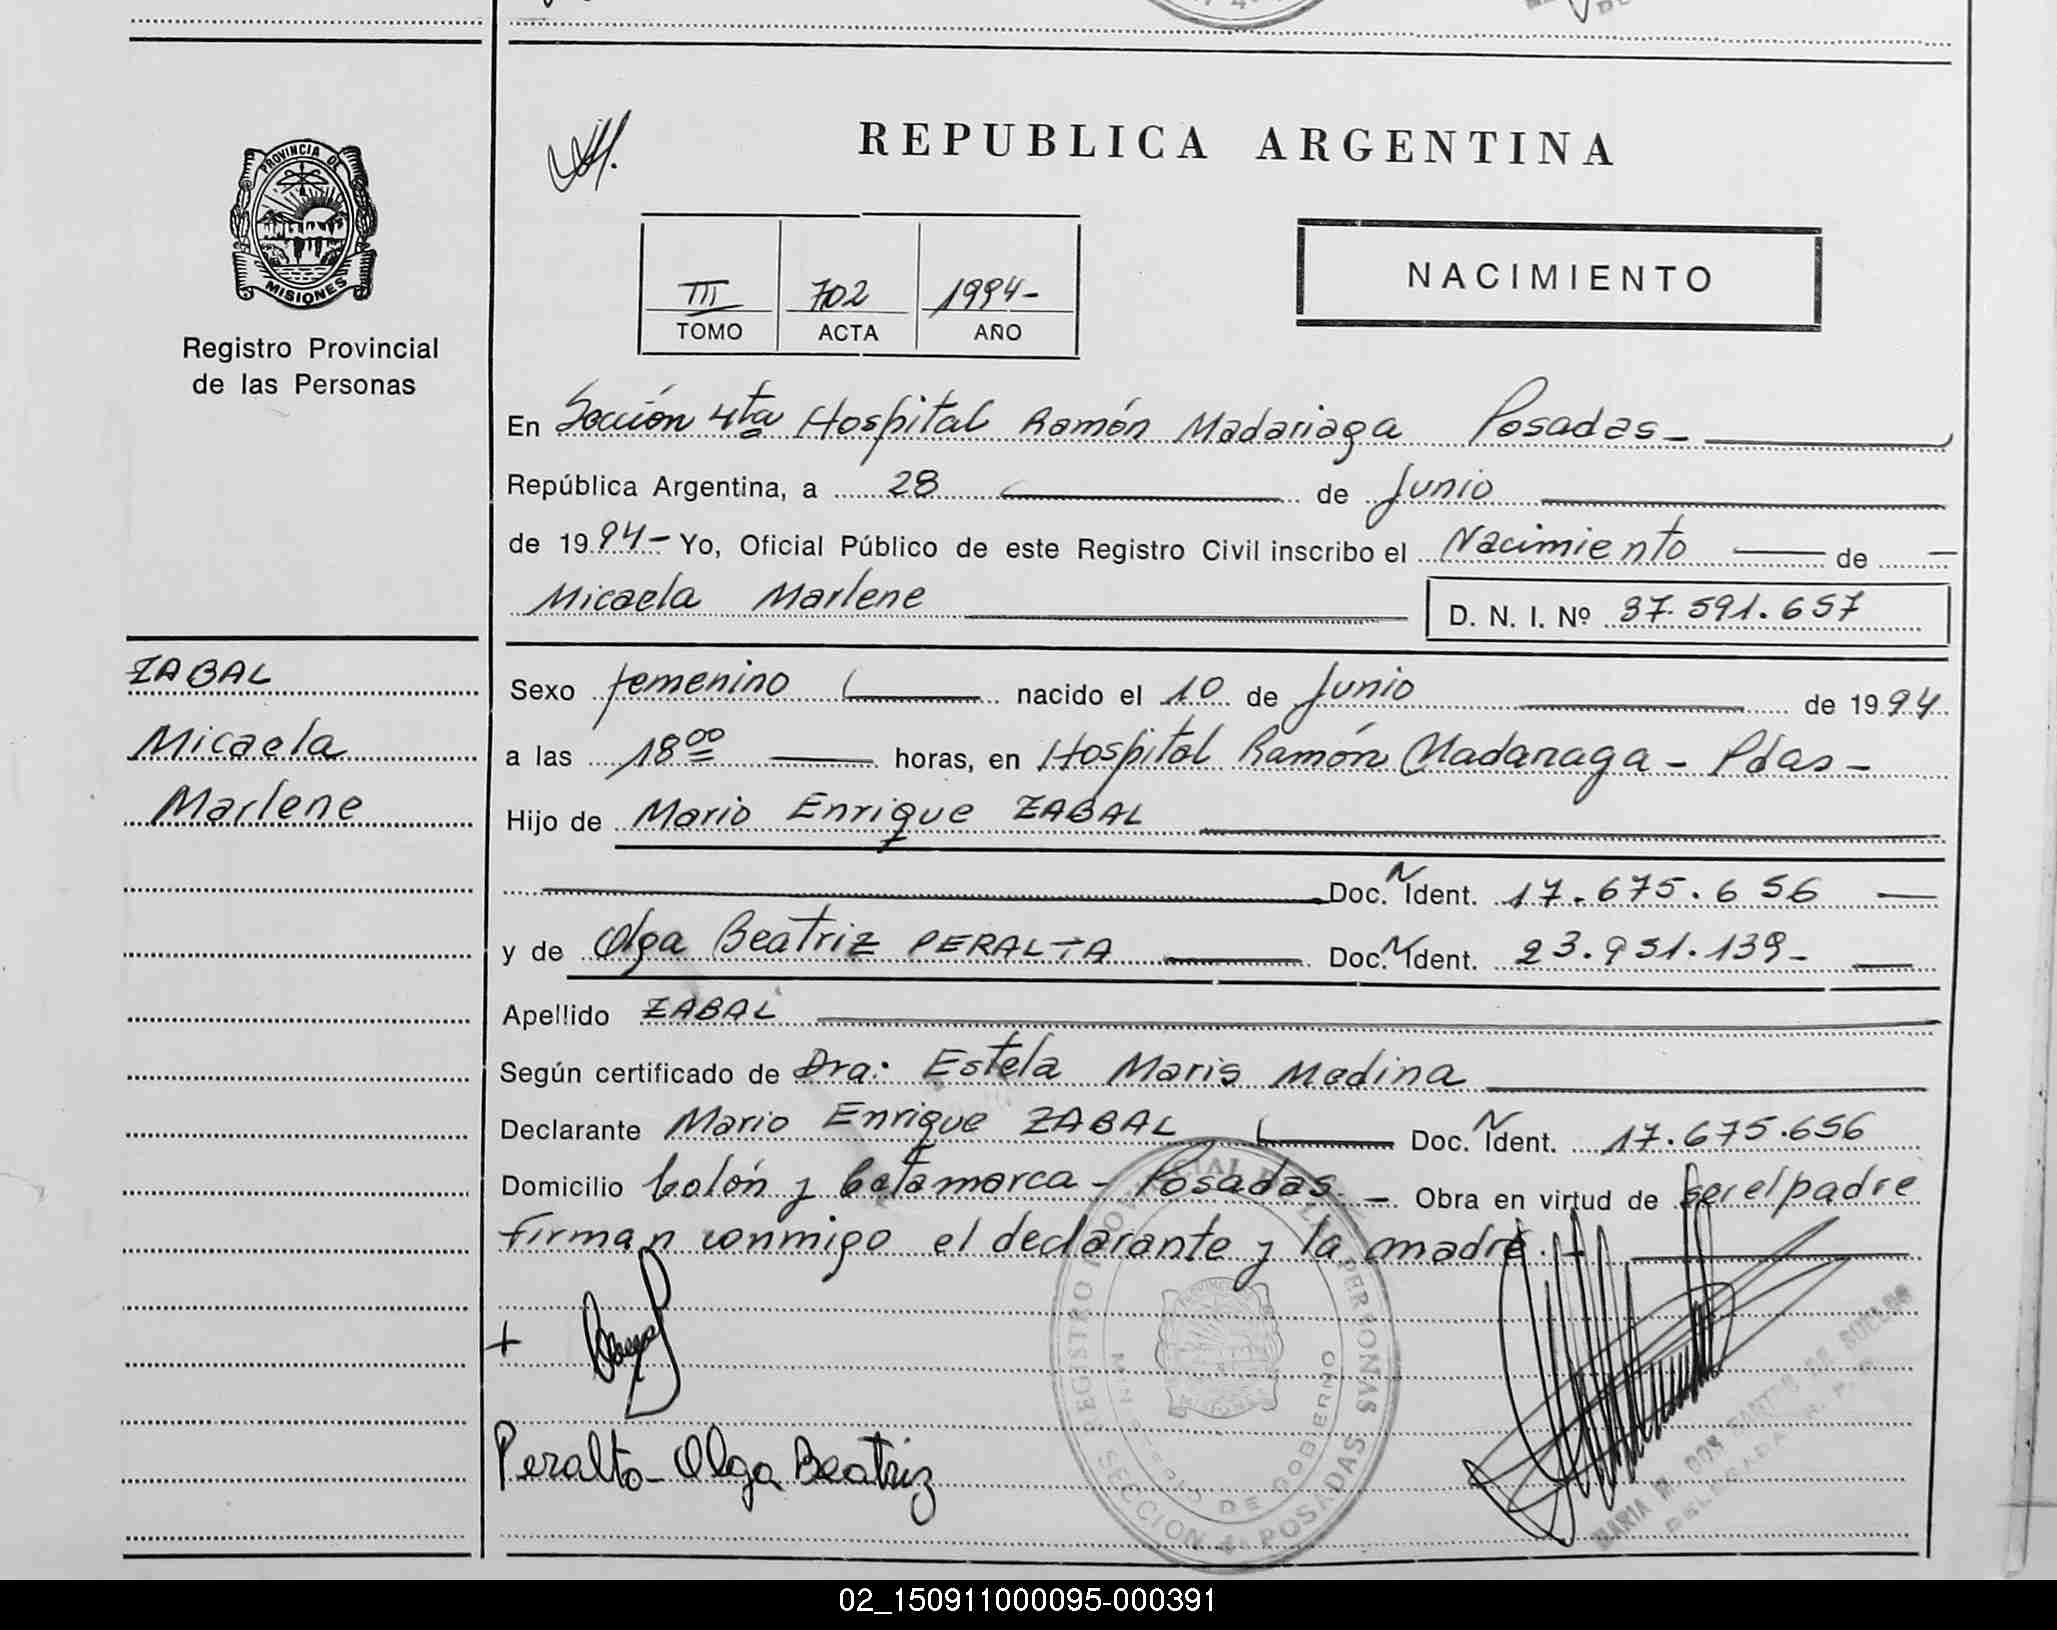 REPUBLICA ARGENTINA
PROVINCIA DE
MISIONES
Registro Provincial
de las Personas
III 702 1994-
TOMO ACTA AÑO
NACIMIENTO
En Sección 4ta Hospital Ramón Madariaga Posadas-
República Argentina, a 28 de Junio
de 1994- Yo, Oficial Público de este Registro Civil inscribo el Nacimiento de
Micaela Marlene
D. N. I. Nº 37.591.657
ZABAL
Micaela
Marlene
Sexo femenino nacido el 10 de Junio de 1994
a las 18 00 horas, en Hospital Ramón Madariaga - Pdas -
Hijo de Mario Enrique ZABAL
Doc. N Ident. 17.675.656
y de Olga Beatriz PERALTA Doc. N Ident. 23.931.139-
Apellido ZABAL
Según certificado de Dra: Estela Maris Medina
Declarante Mario Enrique ZABAL Doc. N Ident. 17.675.656
Domicilio Colón y Catamarca - Posadas - Obra en virtud de ser el padre
firman conmigo el declarante y la madre.-
+
Peralta Olga Beatriz
REGISTRO PROVINCIAL DE LAS PERSONAS
MINISTERIO DE GOBIERNO
MISIONES
SECCION 4a POSADAS
MARIA DOS SANTOS DE
DELEGADA
02_150911000095-000391